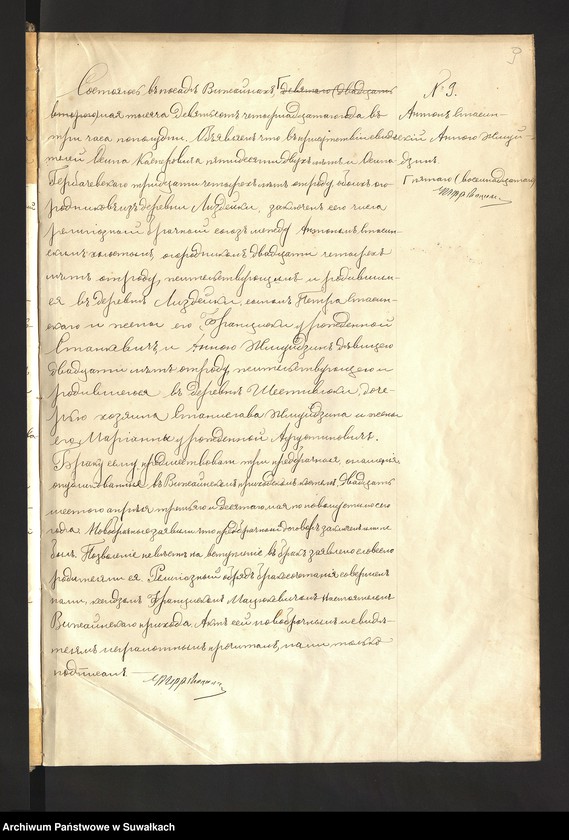 № 9.
Антонъ Стасин-
скій Анною Жмуй-
дзинъ.
Состоялось въ посадѣ Виштинахъ Девятаго (Двадцать
втораго) мая тысяча девятьсотъ четырнадцатаго года въ
три часа пополудни. Объявляемъ что въ присутствіи свидѣ-
телей Осипа пятидесяти двухъ лѣтъ и Осипа
тридцати четырехъ лѣтъ отроду, обоихъ ого-
родниковъ изъ деревни заключенъ сего числа
религіозный брачный союзъ между Антономъ Стасин-
скимъ холостымъ, огородникомъ двадцати четырехъ
лѣтъ отроду, жительствующимъ и родившим-
ся въ деревнѣ сыномъ Петра Стасин-
скаго и жены его Францишки урожденной
Станкевичъ и Анною Жмуйдзинъ дѣвицею
двадцати лѣтъ отроду, жительствующею и
родившеюся въ деревнѣ доче-
рью хозяина Станислава Жмуйдзина и жены
его Маріанны урожденной Августиновичъ.
Браку сему предшествовали три предбрачныя оглашенія,
опубликованныя въ приходскомъ костелѣ двадцать
шестого апрѣля третьяго и десятаго мая по новому стилю сего
года. Новобрачные заявили что предбрачный договоръ заключенъ ими не
былъ. Позволеніе невѣстѣ на вступленіе въ бракъ заявлено словесно
родителями ея. Религіозный обрядъ бракосочетанія совершенъ
нами, ксендзомъ Францискомъ Настоятелемъ
прихода. Актъ сей новобрачнымъ и свидѣ-
телямъ неграмотнымъ прочитанъ, нами только
подписанъ.
Archiwum Państwowe w Suwałkach